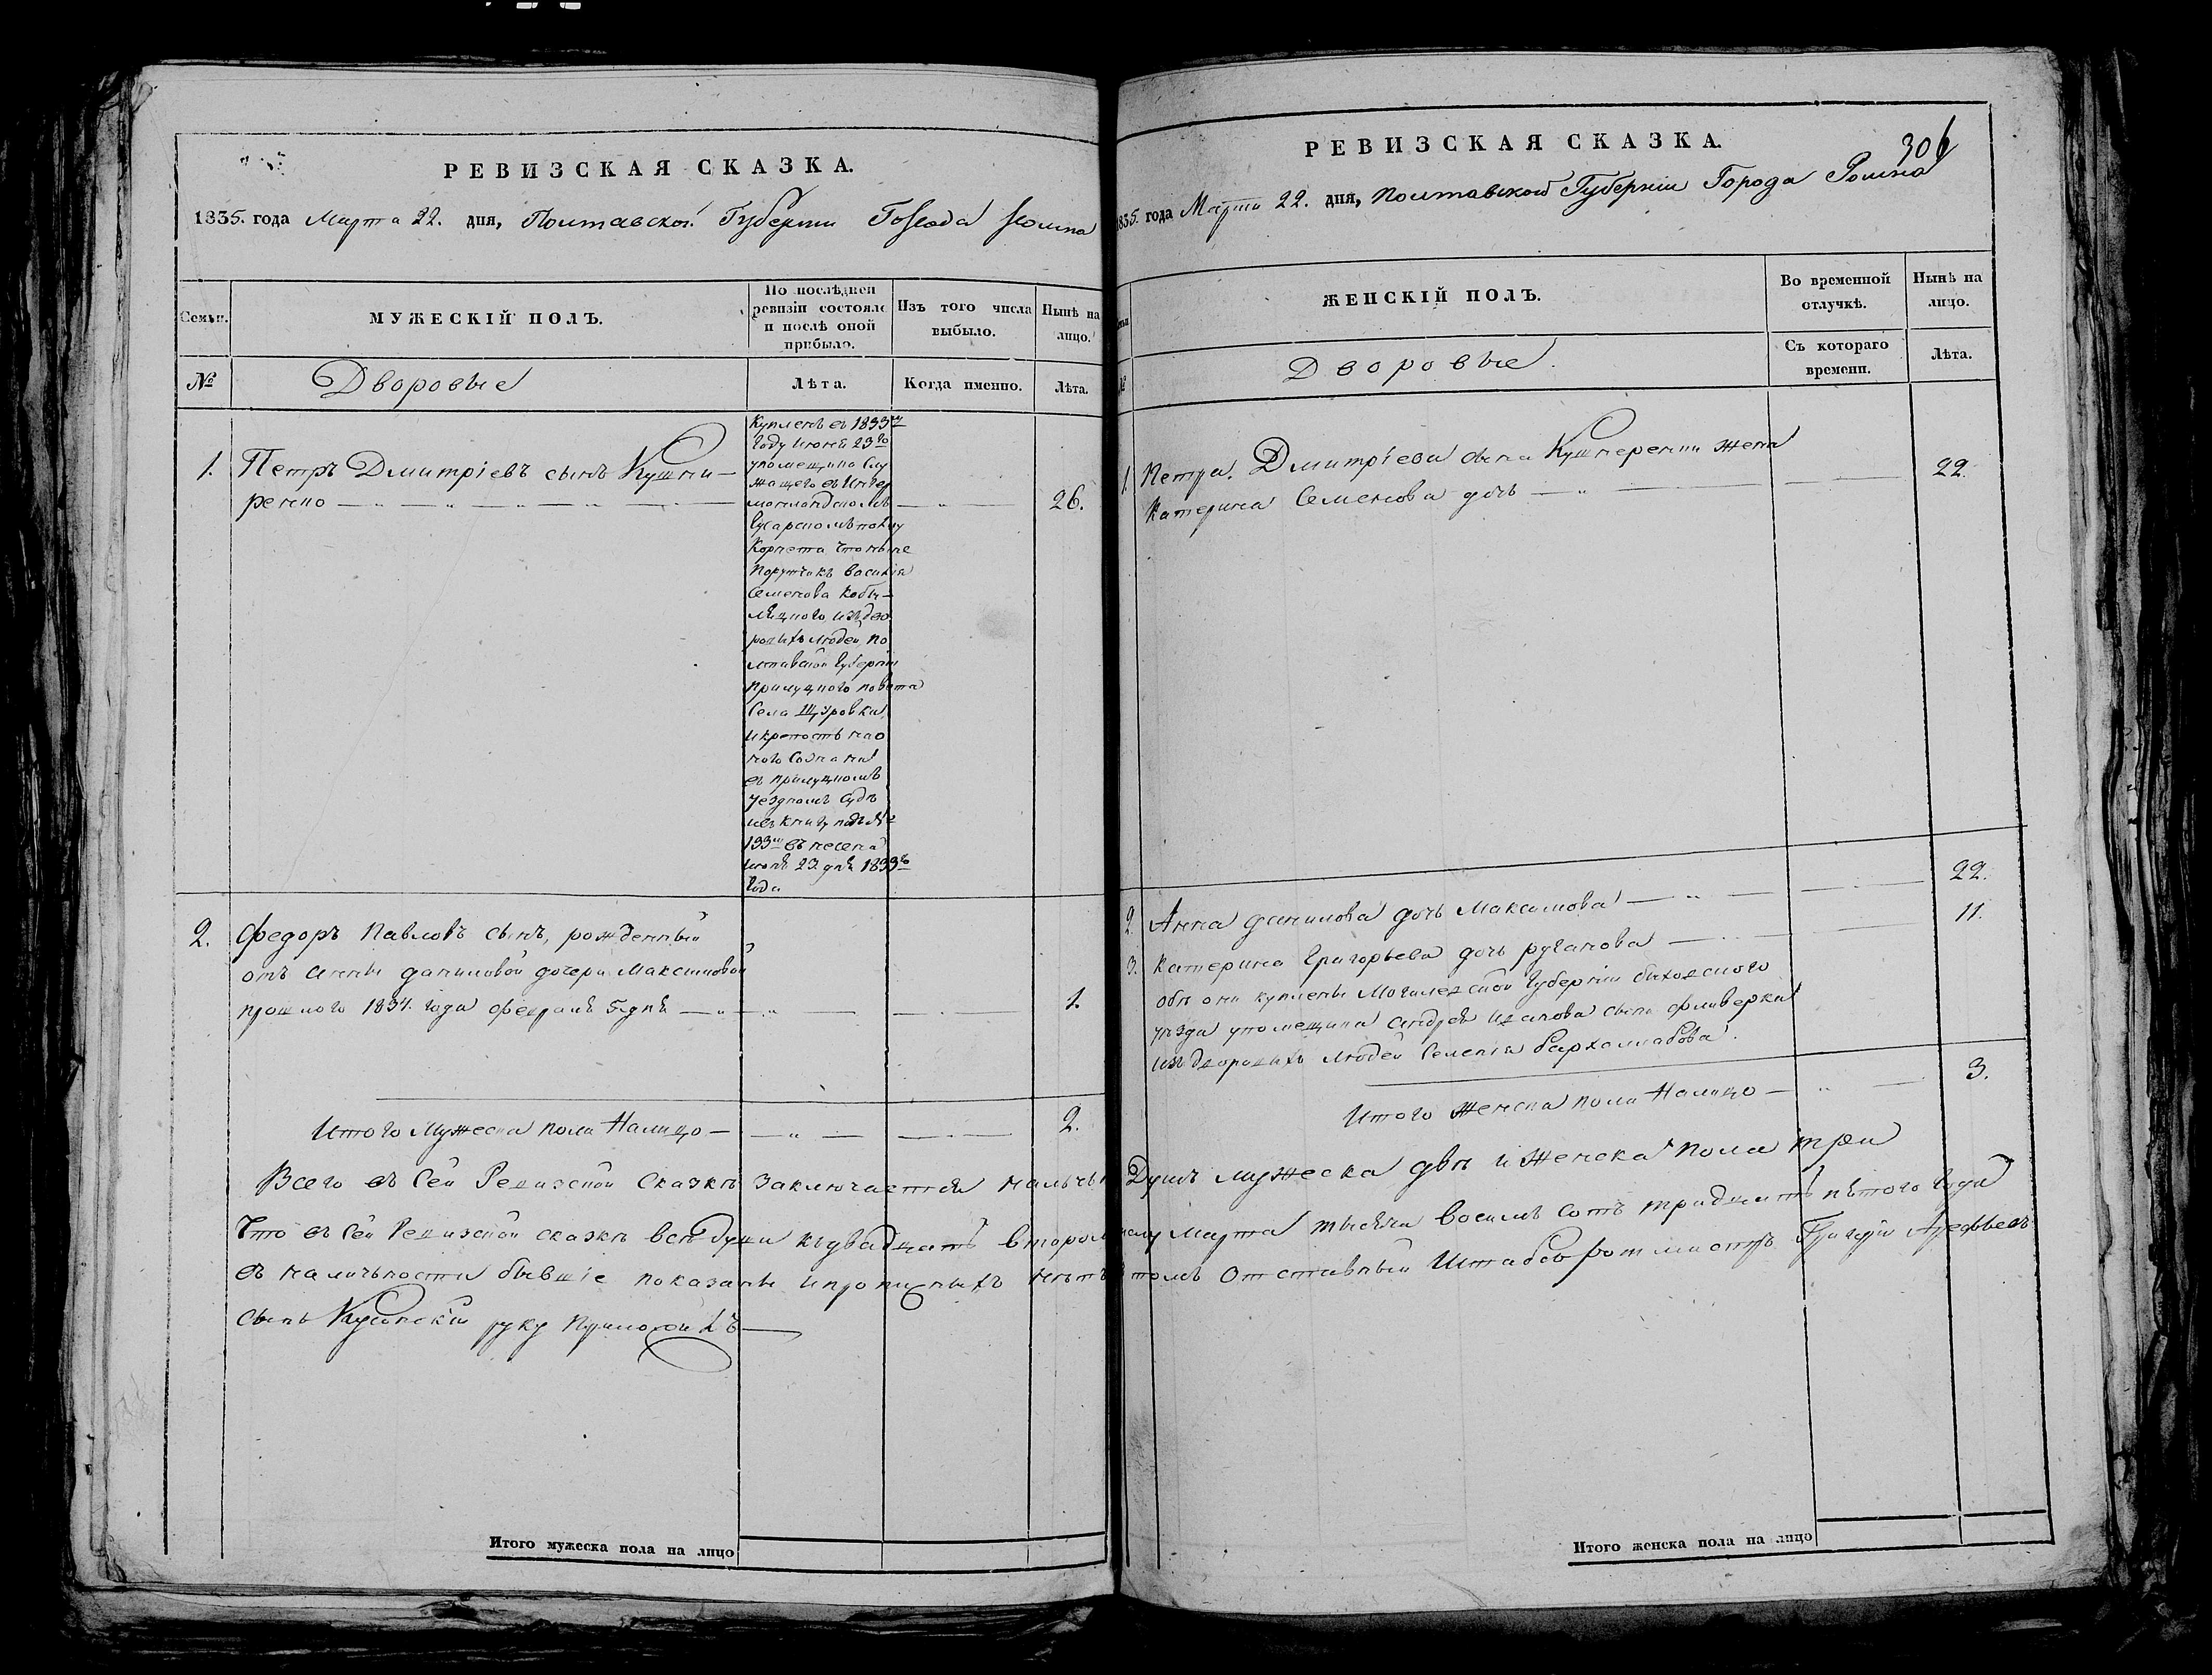 РЕВИЗСКАЯ СКАЗКА.
1835. года Марта 22. дня, Полтавской Губернии Города Ромна
Семьи.
МУЖЕСКІЙ ПОЛЪ.
По послѣдней ревизіи состояло и послѣ оной прибыло.
Изъ того числа выбыло.
Нынѣ на лицо.
№
Дворовые
Лѣта.
Когда именно.
Лѣта.
1. Петръ Дмитріевъ сынъ Кушни-
ренко 26.
Купленъ въ 1833м
году июня 23го
упомещика Слу
жащего въ Инге
Гусарскомъ полку
Корнета что ныне
Порутчикъ Василія
Семенова Кобы-
ляцкого изъ дво
ровыхъ людей По
лтавской Губерніи
Прилуцкого повета
Села Щуровки
и крепость на о
ного
въ прилуцкомъ
уездномъ Суде
и въ книгу подъ №
133м внесена
июня 23 дня 1833го
года
2. Федоръ Павловъ сынъ, рожденный
отъ Анны Даниловой дочери Максимовой
прошлого 1834. года февраля 5 дня 1.
Итого Мужеска пола Налицо 2.
РЕВИЗСКАЯ СКАЗКА.
306
1835. года Марта 22. дня, Полтавской Губерніи Города Ромна
ЖЕНСКІЙ ПОЛЪ.
Во временной отлучкѣ.
Нынѣ на лицо.
№
Дворовые.
Съ котораго времени.
Лѣта.
1. Петра Дмитріева сына Кушнеренка жена
Катерина Семенова дочь 22.
2. Анна Данилова дочь Максимова 22.
3. Катерина Григорьева дочь Руганова 11.
обѣ они куплены Могилевской Губерніи Быховского
уѣзда упомещика Андрея
изъ дворовыхъ людей Селенія
Итого Женска пола Налицо 3.
Всего въ Сей Ревизской Сказкѣ заключается Душъ Мужеска двѣ и Женска пола три
Что въ Сей Ревизской сказкѣ всѣ души къ двадцать второму Марта тысяча восемь сотъ тридцать пятого года
въ наличности бывшіе показаны и прописныхъ нѣтъ въ томъ Отставный Штабсъ ротмистръ Григорій Арефьевъ
сынъ руку приложилъ
Итого мужеска пола на лицо
Итого женска пола на лицо